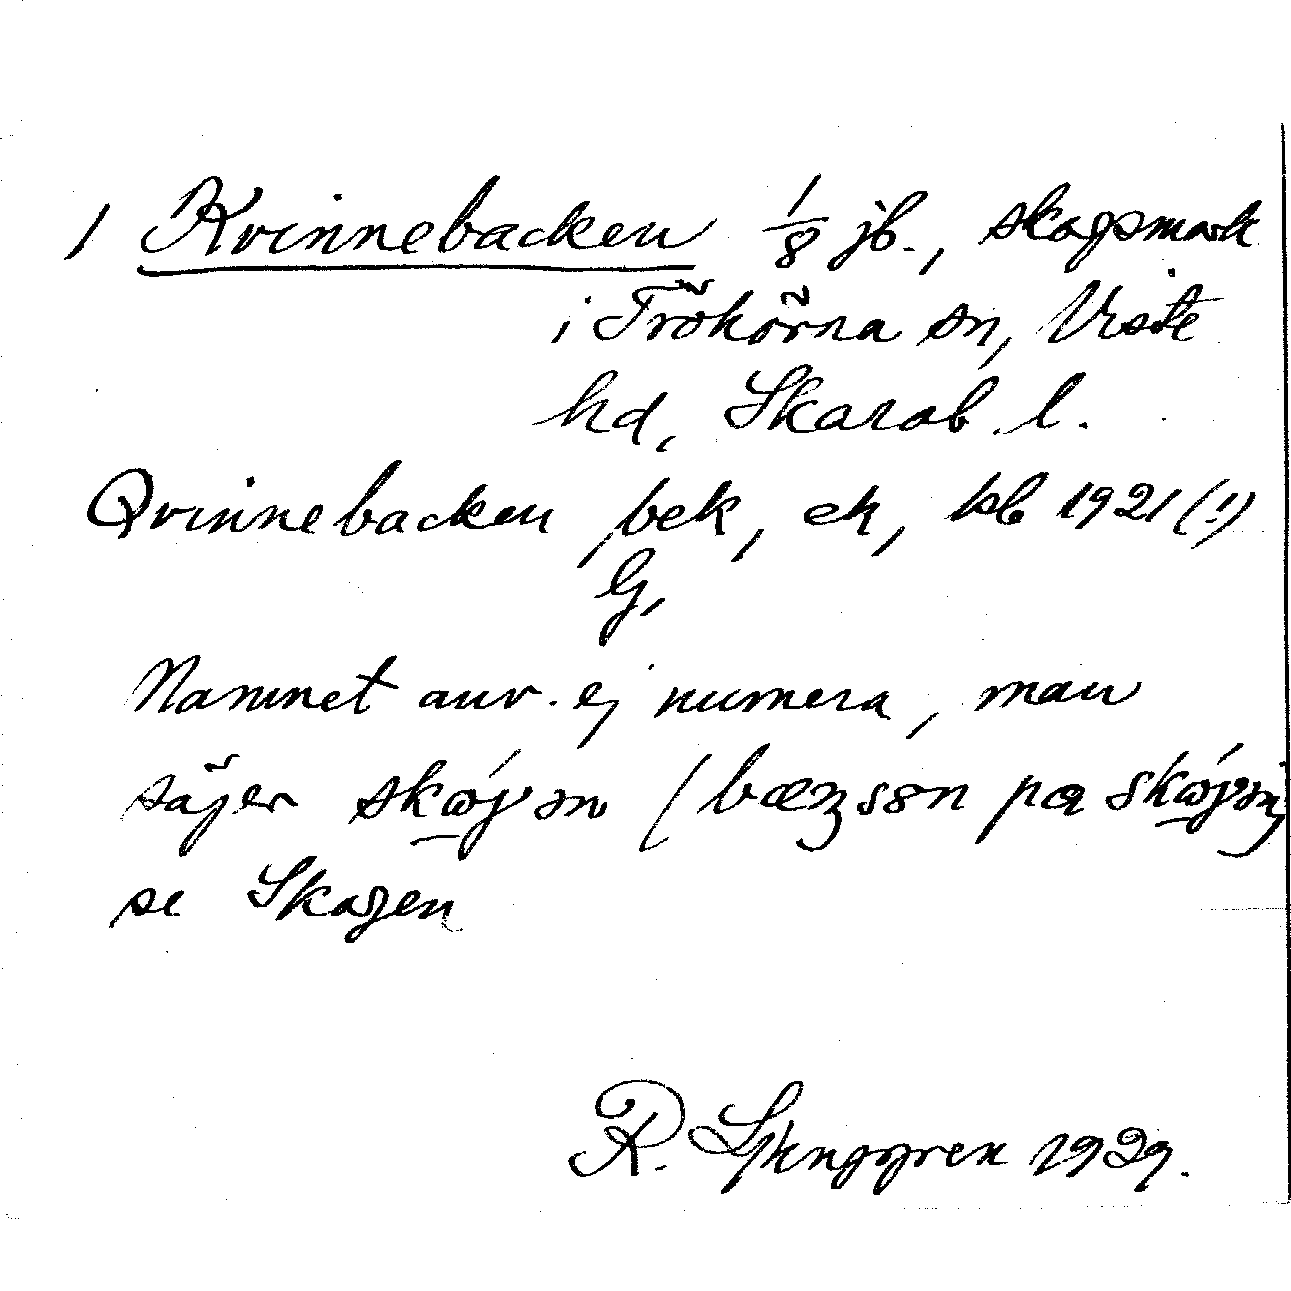 1 Kvinnebacken 1/8 jb., skogsmark
i Trökörna sn, Viste
hd, Skarab. l.
Qvinnebacken, bek, ek, kb 1921 (!)
G,
Namnet anv. ej numera, man
säjer skoyən (bæʒsən pɑ skoyən)
se Skogen
R. Ljunggren 1929.